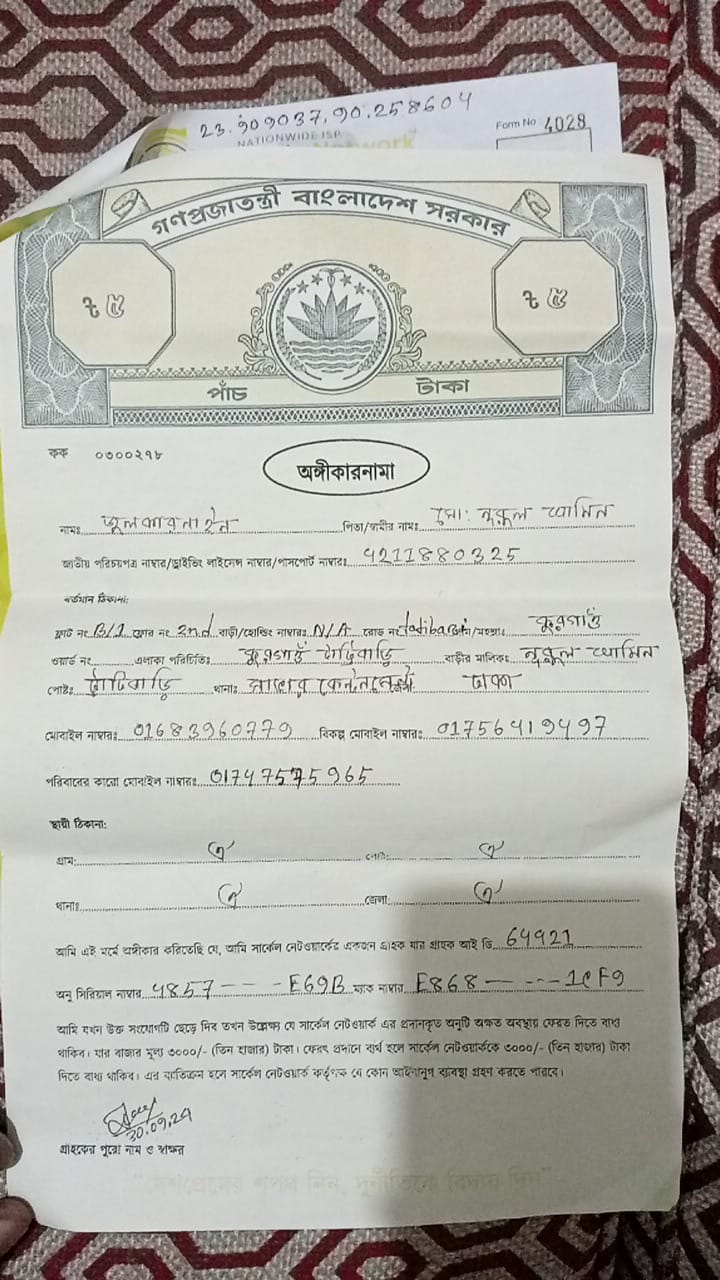 23.909037,90.258604
NATIONWIDE ISP
Form No 4028
গণপ্রজাতন্ত্রী বাংলাদেশ সরকার
৳ ৫
৳ ৫
পাঁচ টাকা
কক ০৩০০২৭৮
অঙ্গীকারনামা
নামঃ জুলকারনাইন পিতা/স্বামীর নামঃ মো: নুরুল আমিন
জাতীয় পরিচয়পত্র নাম্বার/ড্রাইভিং লাইসেন্স নাম্বার/পাসপোর্ট নাম্বারঃ 4211880325
বর্তমান ঠিকানা:
ফ্লাট নং B/1 ফ্লোর নং 2nd বাড়ী/হোল্ডিং নাম্বারঃ N/A রোড নং /মহল্লাঃ কুরগাঁও
ওয়ার্ড নং এলাকা পরিচিতিঃ কুরগাঁও বাড়ীর মালিকঃ নুরুল আমিন
পোষ্টঃ থানাঃ সাভার ঢাকা
মোবাইল নাম্বারঃ 01683960779 বিকল্প মোবাইল নাম্বারঃ 01756419497
পরিবারের কারো মোবাইল নাম্বারঃ 01747575965
স্থায়ী ঠিকানা:
গ্রাম: ঐ পোষ্ট: ঐ
থানাঃ ঐ জেলা: ঐ
আমি এই মর্মে অঙ্গীকার করিতেছি যে, আমি সার্কেল নেটওয়ার্কের একজন গ্রাহক যার গ্রাহক আই ডি 64921
অনু সিরিয়াল নাম্বার 4857---E69B ম্যাক নাম্বার E868---1CF9
আমি যখন উক্ত সংযোগটি ছেড়ে দিব তখন উল্লেক্ষ্য যে সার্কেল নেটওয়ার্ক এর প্রদানকৃত অনুটি অক্ষত অবস্থায় ফেরত দিতে বাধ্য
থাকিব। যার বাজার মূল্য ৩০০০/- (তিন হাজার) টাকা। ফেরৎ প্রদানে ব্যর্থ হলে সার্কেল নেটওয়ার্ককে ৩০০০/- (তিন হাজার) টাকা
দিতে বাধ্য থাকিব। এর ব্যতিক্রম হলে সার্কেল নেটওয়ার্ক কর্তৃপক্ষ যে কোন আইনানুগ ব্যবস্থা গ্রহণ করতে পারবে।
30.09.24
গ্রাহকের পুরো নাম ও স্বাক্ষর
"দেশপ্রেমের শপথ নিন, দুর্নীতিকে বিদায় দিন"